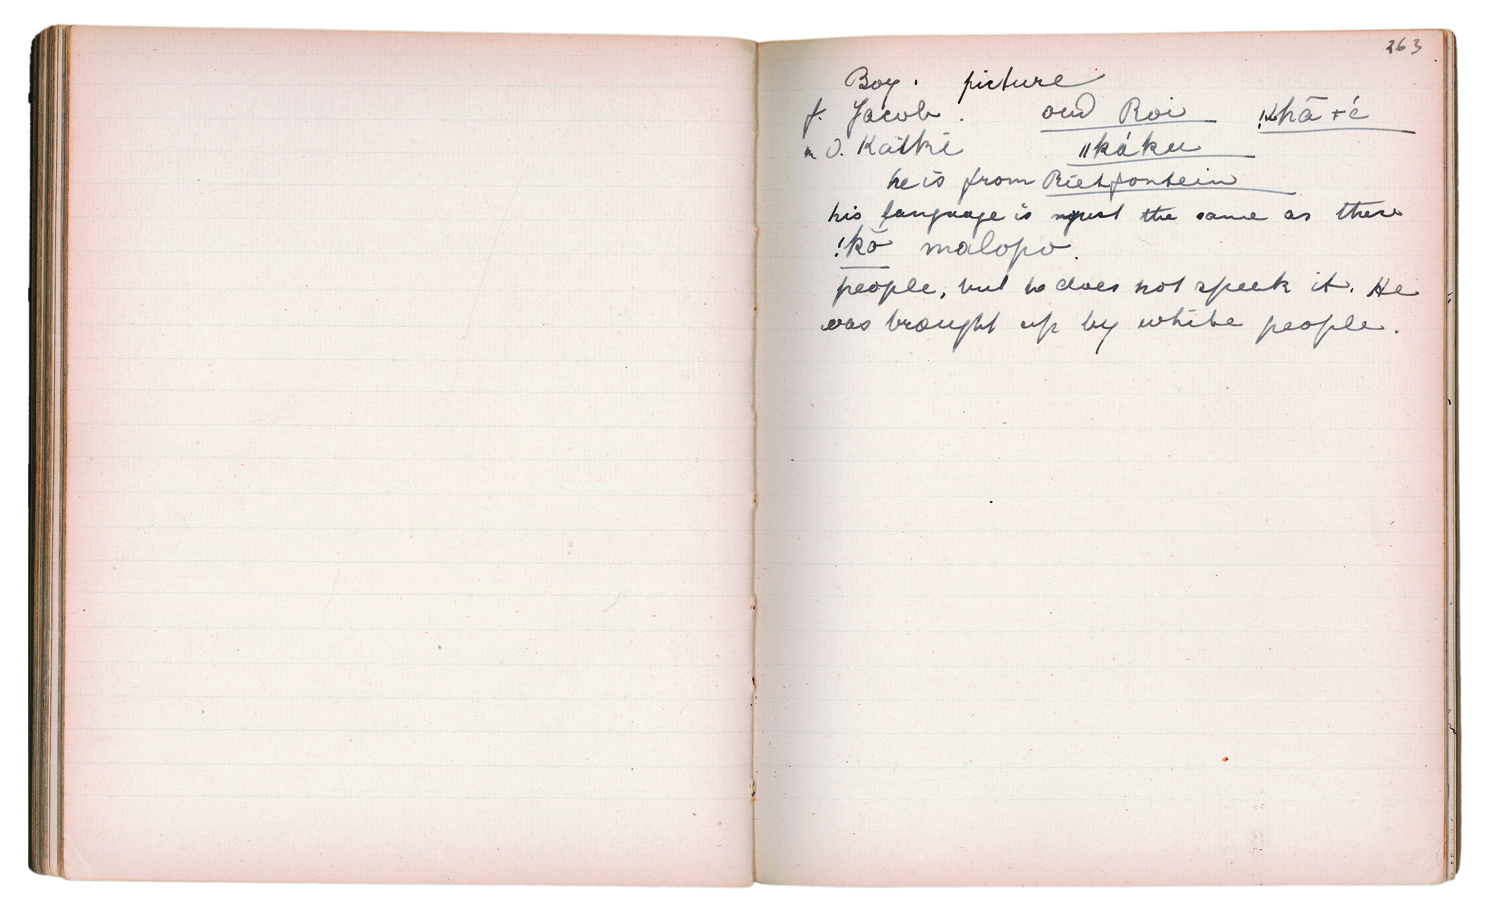 263
Boy. picture
f. Jacob. oud Roi !khā+é
m O. Kaitki ǁkáku
he is from Rietfontein
his language is the same as these
!kō malopo.
people, but he does not speek it. He
was brought up by white people.